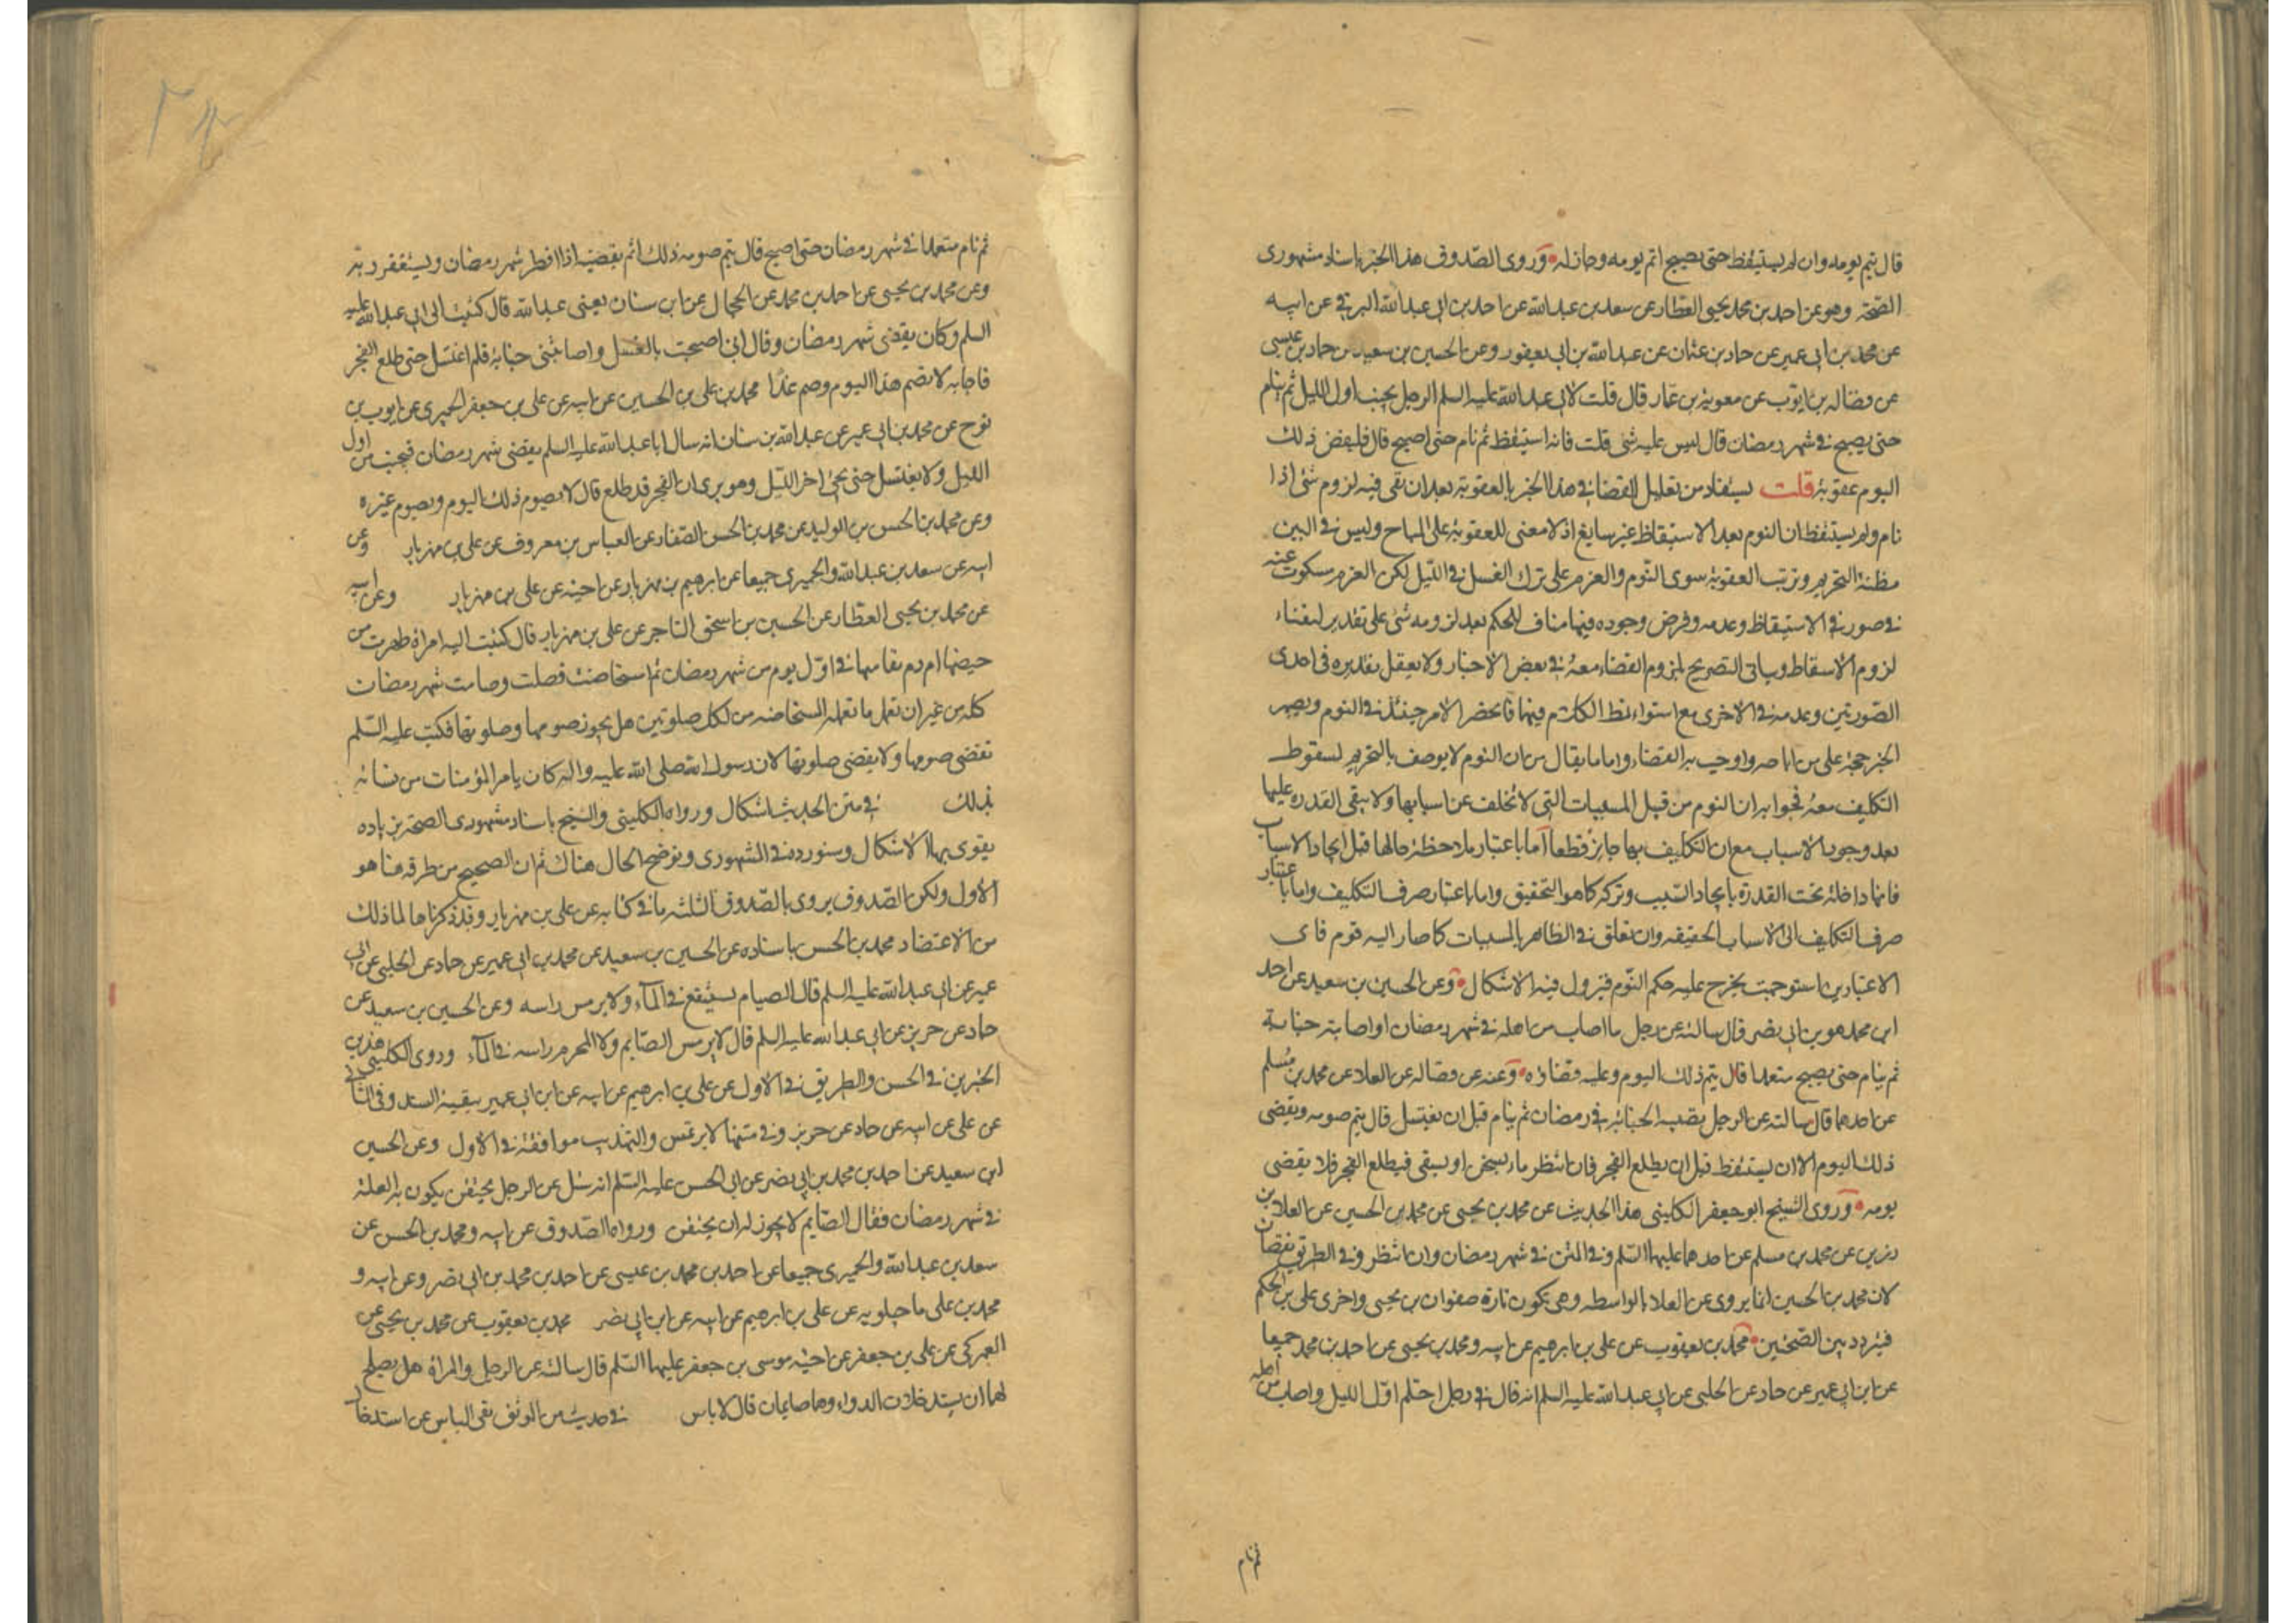 قال يتم يومه وان لم يستيقظ حتى يصبح اتم يومه وجاز له وروى الصدوق هذا الخبر باسناد مشهوري
الصحة وهو عن احمد بن محمد يحيى العطار عن سعد بن عبد الله عن احمد بن ابي عبد الله البرقي عن ابيه
عن محمد بن ابي عمير عن حماد بن عثمان عن عبد الله بن ابي يعفور وعن الحسين بن سعيد عن حماد بن عيسى
عن فضاله بن ايوب عن معوية بن عمار قال قلت لابي عبد الله عليه السلم الرجل يجنب اول الليل ثم ينام
حتى يصبح في شهر رمضان قال ليس عليه شئ قلت فانه استيقظ ثم نام حتى اصبح قال فليقض ذلك
اليوم عقوبة قلت يستفاد من تعليل القضا في هذا الخبر بالعقوبة بعد ان نفى فيه لزوم شئ اذا
نام ولم يستيقظ ان النوم بعد الاستيقاظ غير سايغ اذ لا معنى للعقوبة على المباح وليس في البين
مظنة التحريم وترتب العقوبة سوى النوم والعزم على ترك الغسل في الليل لكن العزم مسكوت عنه
في صورتي الاستيقاظ وعدمه وفرض وجوده فيهما مناف للحكم بعد لزومه شئ على تقدير انتفاء
لزوم الاسقاط وياتي التصريح بلزوم القضاء معه في بعض الاخبار ولا يعقل تقديره في احدى
الصورتين وعدمه في الاخرى مع استواء نمط الكلام فيهما فانحصر الامر حينئذ في النوم ويصير
الخبر حجة على من اباحه واوجب به القضاء واما ما يقال من ان النوم لا يوصف بالتحريم لسقوط
التكليف معه فجوابه ان النوم من قبيل المسببات التي لا تخلف عن اسبابها ولا يبقى القدرة عليها
بعد وجود الاسباب مع ان التكليف بها جايز قطعا اما باعتبار ملاحظة حالها قبل ايجاد الاسباب
فانها داخلة تحت القدرة بايجاد السبب وتركه كما هو التحقيق واما باعتبار صرف التكليف واما باعتبار
صرف التكليف الى الاسباب الحقيقه وان تعلق في الظاهر بالمسببات كما صار اليه قوم فاى
الاعتبارين استوجبت يخرج عليه حكم النوم فيزول فيه الاشكال وعن الحسين بن سعيد عن احمد
ابن محمد هو بن ابي نصر قال سالته عن رجل ما اصاب من اهله في شهر رمضان او اصابته جنابة
ثم ينام حتى يصبح متعمدا قال يتم ذلك اليوم وعليه قضاؤه وعنه عن فضاله عن العلا عن محمد بن مسلم
عن احدهما قال سالته عن الرجل يصيبه الجنابة في رمضان ثم ينام قبل ان يغتسل قال يتم صومه ويقضى
ذلك اليوم الا ان يستيقظ قبل ان يطلع الفجر فان انتظر ماء يسخن او يستقى فيطلع الفجر فلا يقضى
يومه وروى الشيخ ابو جعفر الكليني هذا الحديث عن محمد بن يحيى عن محمد بن الحسين عن العلا بن
رزين عن محمد بن مسلم عن احدهما عليهما السلم وفي المتن في شهر رمضان وان انتظر وفي الطريق نقصان
لان محمد بن الحسين انما يروى عن العلا بالواسطه وهي تكون تارة صفوان بن يحيى واخرى على بن الحكم
فيتردد بين الصحتين محمد بن يعقوب عن على بن ابرهيم عن ابيه ومحمد بن يحيى عن احمد بن محمد جميعا
عن ابن ابي عمير عن حماد عن الحلبي عن ابي عبد الله عليه السلم انه قال في رجل احتلم اول الليل واصاب من اهله
ثم نام
ثم نام متعمدا في شهر رمضان حتى اصبح قال يتم صومه ذلك ثم يقضيه اذا افطر شهر رمضان ويستغفر ربه
وعن محمد بن يحيى عن احمد بن محمد عن الحجال عن ابن سنان يعنى عبد الله قال كتبت الى ابي عبد الله عليه
السلم وكان يقضى شهر رمضان وقال اني اصبحت بالغسل واصابتني جنابة فلم اغتسل حتى طلع الفجر
فاجابه لا تصم هذا اليوم وصم غدا محمد بن على بن الحسين عن ابيه عن على بن جعفر الحميرى عن ايوب بن
نوح عن محمد بن ابي عمير عن عبد الله بن سنان انه سال ابا عبد الله عليه السلم يقضى شهر رمضان فيجنب من اول
الليل ولا يغتسل حتى يجئ اخر الليل وهو يرى ان الفجر قد طلع قال لا يصوم ذلك اليوم ويصوم غيره
وعن محمد بن الحسن بن الوليد عن محمد بن الحسن الصفار عن العباس بن معروف عن على بن مهزيار وعن
ابيه عن سعد بن عبد الله والحميرى جميعا عن ابرهيم بن مهزيار عن اخيه عن على بن مهزيار وعن ابيه
عن محمد بن يحيى العطار عن الحسين بن اسحق التاجر عن على بن مهزيار قال كتبت اليه امراة طهرت من
حيضها ام دم نفاسها في اول يوم من شهر رمضان ثم استحاضت فصلت وصامت شهر رمضان
كله من غير ان تعمل ما تعمله المستحاضه من لكل صلوتين هل يجوز صومها وصلوتها فكتب عليه السلم
تقضى صومها ولا يقضى صلوتها لان رسول الله صلى الله عليه واله كان يامر المؤمنات من نسائه
بذلك في متن الحديث اشكال ورواه الكليني والشيخ باسناد مشهورى الصحة بزياده
يقوى بها الاشكال وسنورده في المشهورى ونوضح الحال هناك ثم ان الصحيح من طرقه هنا هو
الاول ولكن الصدوق يروى بالطرق الثلثه ما في كتابه عن على بن مهزيار وقد ذكرناها لما ذلك
من الاعتضاد محمد بن الحسن باسناده عن الحسين بن سعيد عن محمد بن ابي عمير عن حماد عن الحلبى عن ابي
عمير عن ابي عبد الله عليه السلم قال الصيام يستنقع في الماء ولا يرمس راسه وعن الحسين بن سعيد عن
حماد عن حريز عن ابي عبد الله عليه السلم قال لا يرمس الصايم ولا المحرم راسه في الماء وروى الكليني هذين
الخبرين في الحسن والطريق في الاول عن على بن ابرهيم عن ابيه عن ابن ابي عمير ببقية السند وفي الثاني
عن على عن ابيه عن حماد عن حريز وفي متنها لا يرتمس والتهذيب موافقه في الاول وعن الحسين
ابن سعيد عن احمد بن محمد بن ابي نصر عن ابي الحسن عليه السلم انه سئل عن الرجل يحتقن يكون به العلة
في شهر رمضان فقال الصايم لا يجوز له ان يحتقن ورواه الصدوق عن ابيه ومحمد بن الحسن عن
سعد بن عبد الله والحميرى جميعا عن احمد بن محمد بن عيسى عن احمد بن محمد بن ابي نصر وعن ابيه و
محمد بن على ماجلويه عن على بن ابرهيم عن ابيه عن ابن ابي نصر محمد بن يعقوب عن محمد بن يحيى عن
العمركى عن على بن جعفر عن اخيه موسى بن جعفر عليهما السلم قال سالته عن الرجل والمراة هل يصلح
لهما ان يستدخلا الدواء وهما صايمان قال لا باس في حديث من الموثق نفى الباس عن استدخال